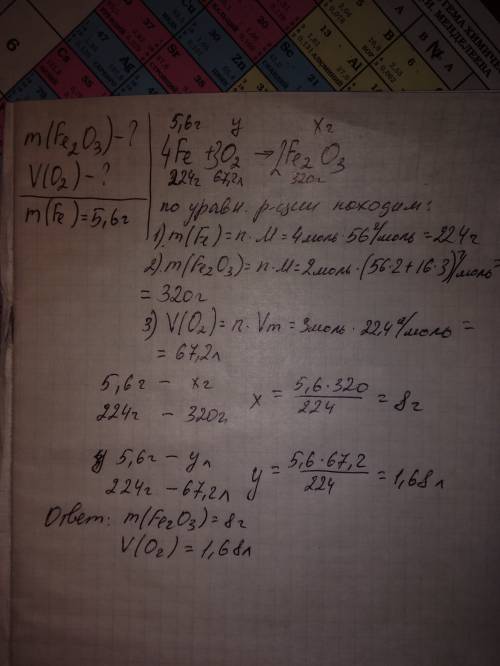 m(Fe2O3)-?
V(O2)-?
m(Fe)=5,6г
5,6г y xг
4Fe+3O2→2Fe2O3
224г 67,2л 320г
по уравн. р-ции находим:
1) m(Fe)=n·M=4моль·56г/моль=224г
2) m(Fe2O3)=n·M=2моль·(56·2+16·3)г/моль=
=320г
3) V(O2)=n·Vm=3моль·22,4г/моль=
=67,2л
5,6г - xг
224г - 320г
x = 5,6·320/224 = 8г
5,6г - yл
224г - 67,2л
y = 5,6·67,2/224 = 1,68л
Ответ: m(Fe2O3)=8г
V(O2)=1,68л